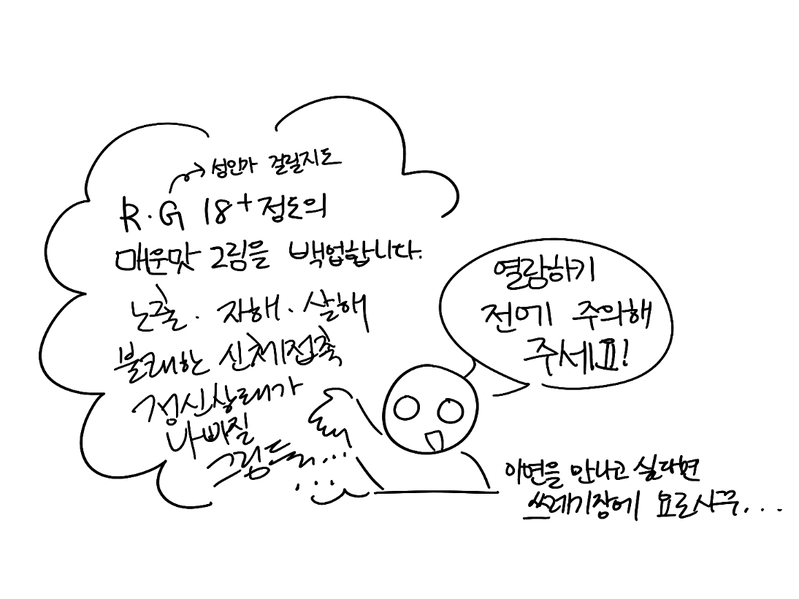 성인가 걸릴지도
R·G 18+정도의
매운맛 그림을 백업합니다.
노출 · 자해 · 살해
불쾌한 신체접촉
정신상태가
나빠질
그림들...
열람하기
전에 주의해
주세요!
이면을 만나고 싶다면
쓰레기장에 요로시쿠...